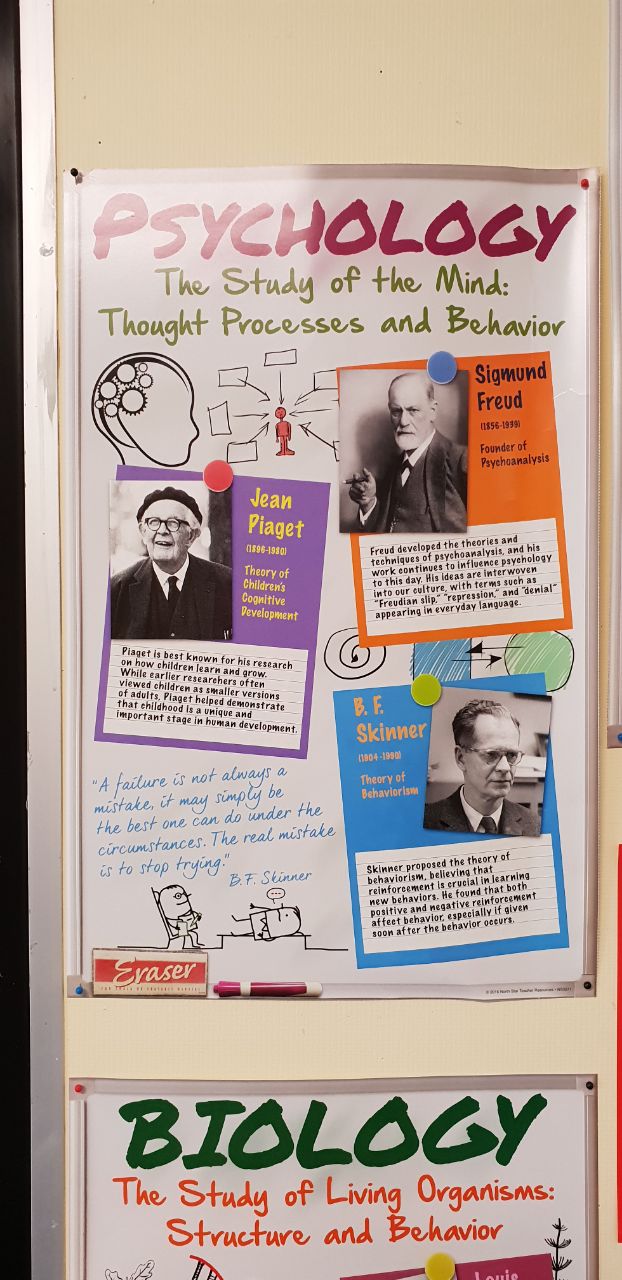 PSYCHOLOGY
The Study of the Mind:
Thought Processes and Behavior
Sigmund
Freud
(1856-1939)
Founder of
Psychoanalysis
Freud developed the theories and
techniques of psychoanalysis, and his
work continues to influence psychology
to this day. His ideas are interwoven
into our culture, with terms such as
"Freudian slip," "repression," and "denial"
appearing in everyday language.
Jean
Piaget
(1896-1980)
Theory of
Children's
Cognitive
Development
Piaget is best known for his research
on how children learn and grow.
While earlier researchers often
viewed children as smaller versions
of adults, Piaget helped demonstrate
that childhood is a unique and
important stage in human development.
B. F.
Skinner
(1904-1990)
Theory of
Behaviorism
Skinner proposed the theory of
behaviorism, believing that
reinforcement is crucial in learning
new behaviors. He found that both
positive and negative reinforcement
affect behavior, especially if given
soon after the behavior occurs.
"A failure is not always a
mistake, it may simply be
the best one can do under the
circumstances. The real mistake
is to stop trying."
B.F. Skinner
Eraser
North Star Teacher Resources
BIOLOGY
The Study of Living Organisms:
Structure and Behavior
Louis